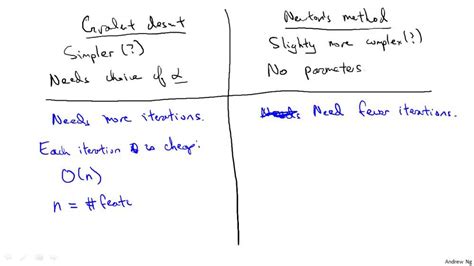 Gradient descent
Simpler (?)
Needs choice of α
Newton's method
Slightly more complex (?)
No parameters
Needs more iterations.
Each iteration is cheap:
O(n)
n = #featu
Need fewer iterations.
Andrew Ng